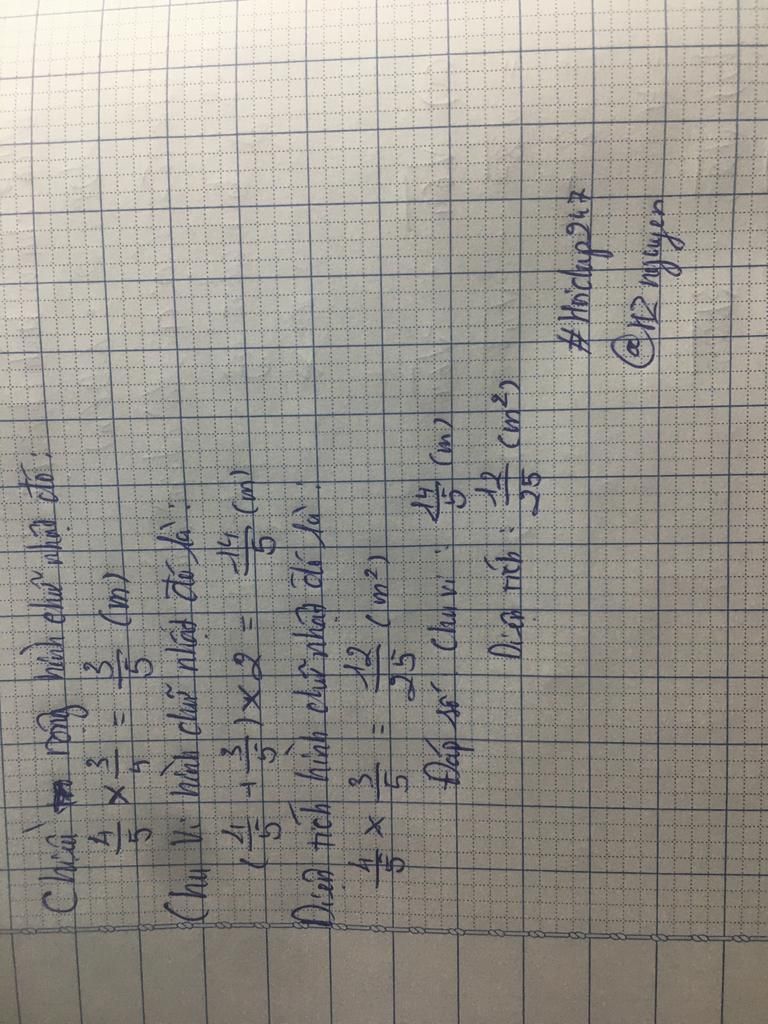 Chiều rộng hình chữ nhật đó:
4/5 × 3/4 = 3/5 (m)
Chu vi hình chữ nhật đó là:
(4/5 + 3/5) × 2 = 14/5 (m)
Diện tích hình chữ nhật đó là:
4/5 × 3/5 = 12/25 (m²)
Đáp số Chu vi: 14/5 (m)
Diện tích: 12/25 (m²)
#Hoidap247
@HZ nguyen